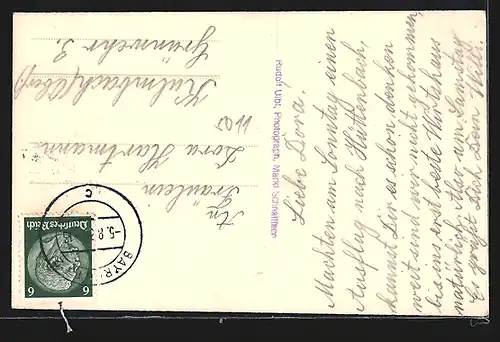 Liebe Dora!
Machten am Sonntag einen
Ausflug nach Hüttenbach,
kannst Dir es schon denken
weit sind wir nicht gekommen,
bis ins erst beste Wirtshaus
natürlich. Also am Samstag
Es grüßt Dich Dein Willi.
Rudolf Uibl, Photograph, Markt Schnaittach
An
Fräulein
Dora Hartmann
Kulmbach (Obfr)
Grünwehr 3.
Deutsches Reich
6 6
-5.8.
BAYR
c